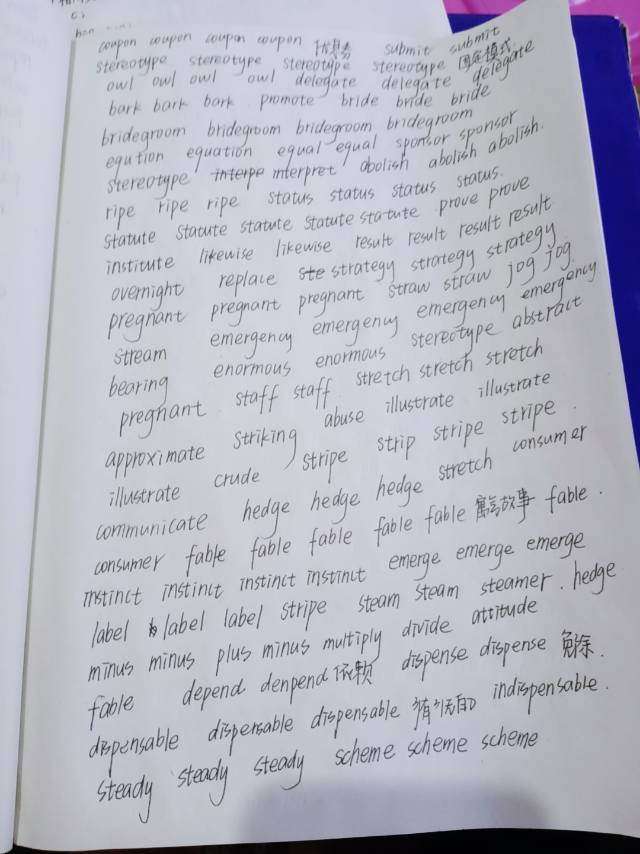 coupon coupon coupon coupon 优惠券 submit submit
stereotype stereotype stereotype stereotype 固定模式
owl owl owl owl delegate delegate delegate
bark bark bark promote bride bride bride
bridegroom bridegroom bridegroom bridegroom
eqution equation equal equal sponsor sponsor
stereotype interpe interpret abolish abolish abolish.
ripe ripe ripe status status status status.
statute statute statute statute statute prove prove
institute likewise likewise result result result result
overnight replace ste strategy strategy strategy
pregnant pregnant pregnant straw straw jog jog
stream emergency emergency emergency emergency
bearing enormous enormous stereotype abstract
pregnant staff staff stretch stretch stretch
approximate striking abuse illustrate illustrate
illustrate crude stripe strip stripe stripe.
communicate hedge hedge hedge stretch consumer
consumer fable fable fable fable fable 寓言故事 fable.
instinct instinct instinct instinct emerge emerge emerge
label label label stripe steam steam steamer. hedge
minus minus plus minus multiply divide attitude
fable depend denpend 依赖 dispense dispense 免除.
dispensable dispensable dispensable indispensable.
steady steady steady scheme scheme scheme